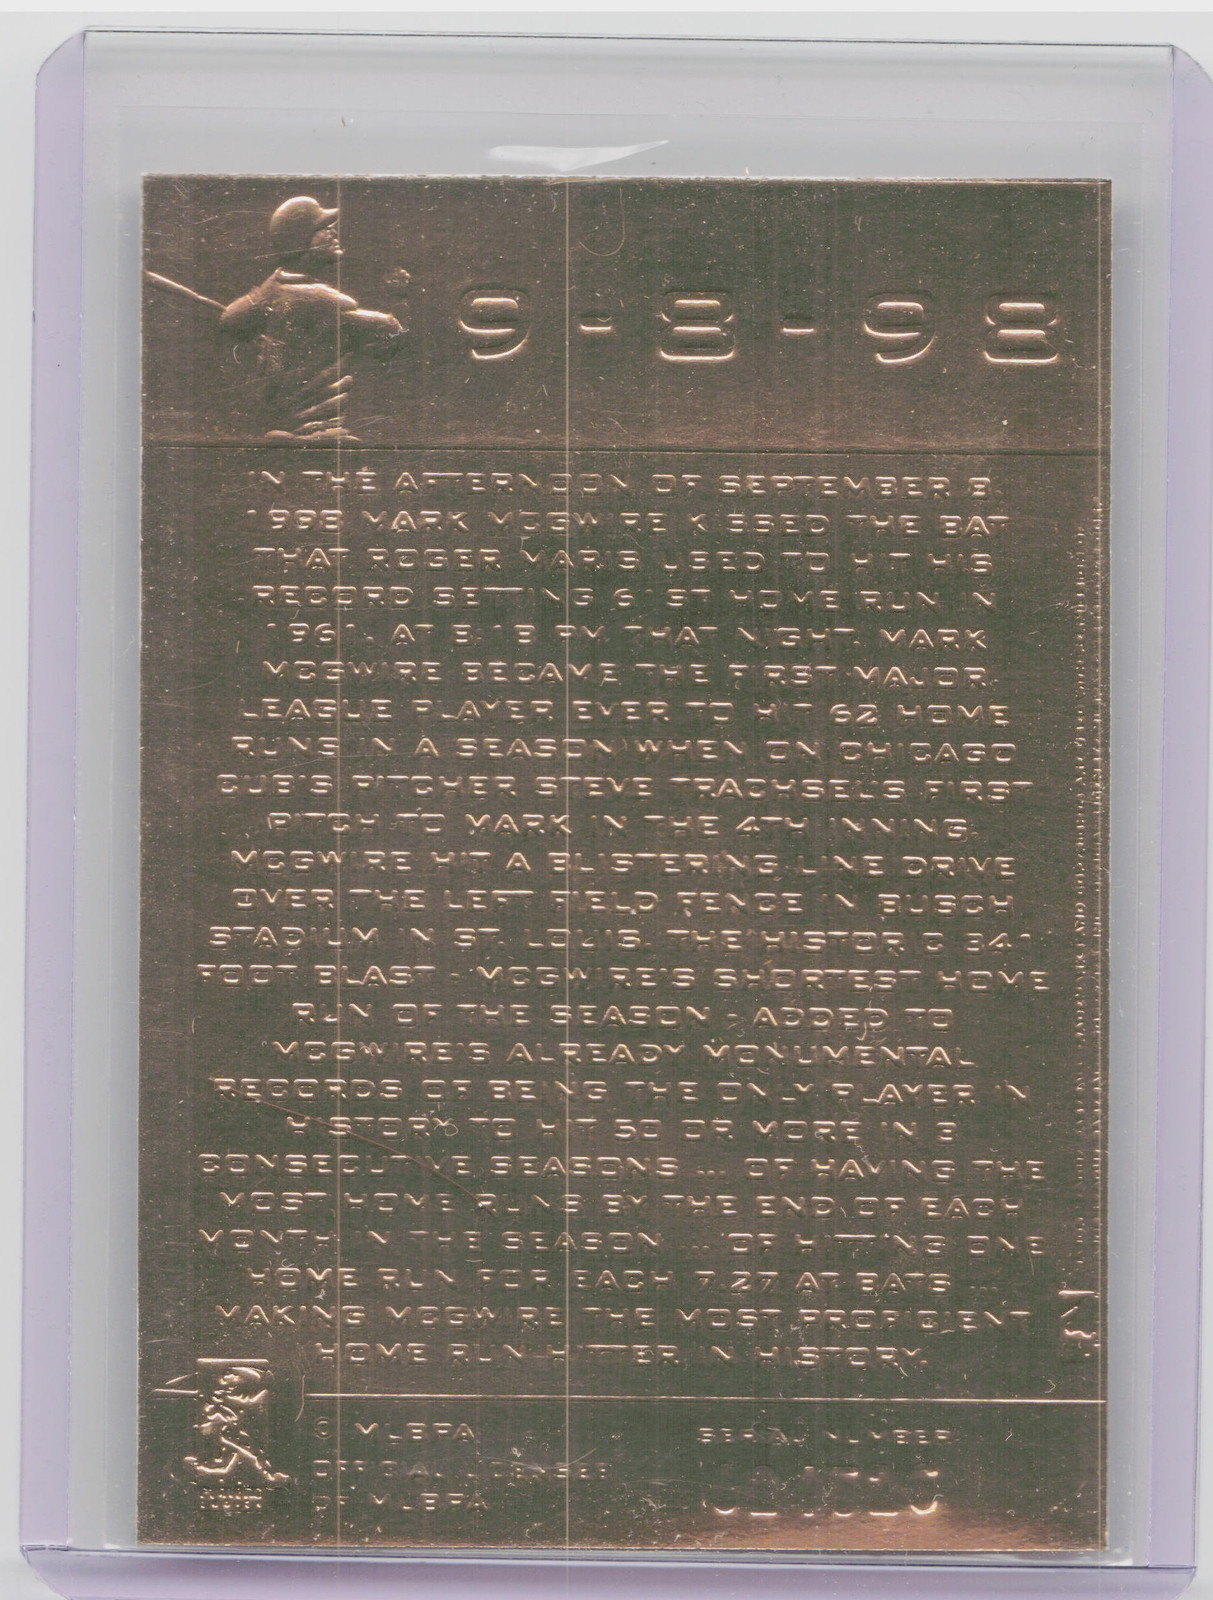 9-8-98
IN THE AFTERNOON OF SEPTEMBER 8,
1998 MARK MCGWIRE KISSED THE BAT
THAT ROGER MARIS USED TO HIT HIS
RECORD SETTING 61ST HOME RUN IN
1961. AT 8:18 PM THAT NIGHT, MARK
MCGWIRE BECAME THE FIRST MAJOR
LEAGUE PLAYER EVER TO HIT 62 HOME
RUNS IN A SEASON WHEN ON CHICAGO
CUB'S PITCHER STEVE TRACHSELS FIRST
PITCH TO MARK IN THE 4TH INNING,
MCGWIRE HIT A BLISTERING LINE DRIVE
OVER THE LEFT FIELD FENCE IN BUSCH
STADIUM IN ST. LOUIS. THE HISTORIC 341
FOOT BLAST - MCGWIRE'S SHORTEST HOME
RUN OF THE SEASON - ADDED TO
MCGWIRE'S ALREADY MONUMENTAL
RECORDS OF BEING THE ONLY PLAYER IN
HISTORY TO HIT 50 OR MORE IN 3
CONSECUTIVE SEASONS ... OF HAVING THE
MOST HOME RUNS BY THE END OF EACH
MONTH IN THE SEASON ... OF HITTING ONE
HOME RUN FOR EACH 7.27 AT BATS ...
MAKING MCGWIRE THE MOST PROFICIENT
HOME RUN HITTER IN HISTORY.
© MLBPA
SERIAL NUMBER
OFFICIAL LICENSEE
OF MLBPA
PLAYERS
CHOICE